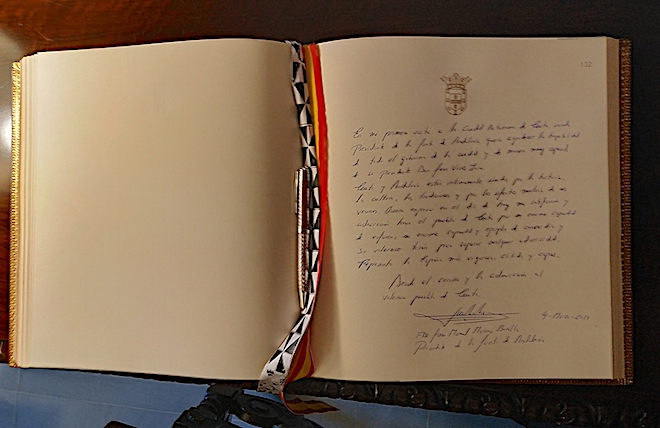 132
En mi primera visita a la Ciudad Autónoma de Ceuta como
Presidente de la Junta de Andalucía quiero agradecer la hospitalidad
de todo el gobierno de la ciudad y de manera muy especial
de su presidente Don Juan Vivas Lara.
Ceuta y Andalucía están íntimamente unidas por la historia,
la cultura, las tradiciones y por los afectos mutuos de sus
vecinos. Quiero expresar en el día de hoy mi
admiración hacia el pueblo de Ceuta por su enorme capacidad
de esfuerzo, su enorme y ejemplo de convivencia y
su valeroso para superar cualquier adversidad.
Representa la España más
Desde el cariño y la admiración al
valeroso pueblo de Ceuta.
Fdo Juan Manuel Moreno Bonilla
Presidente de la Junta de Andalucía